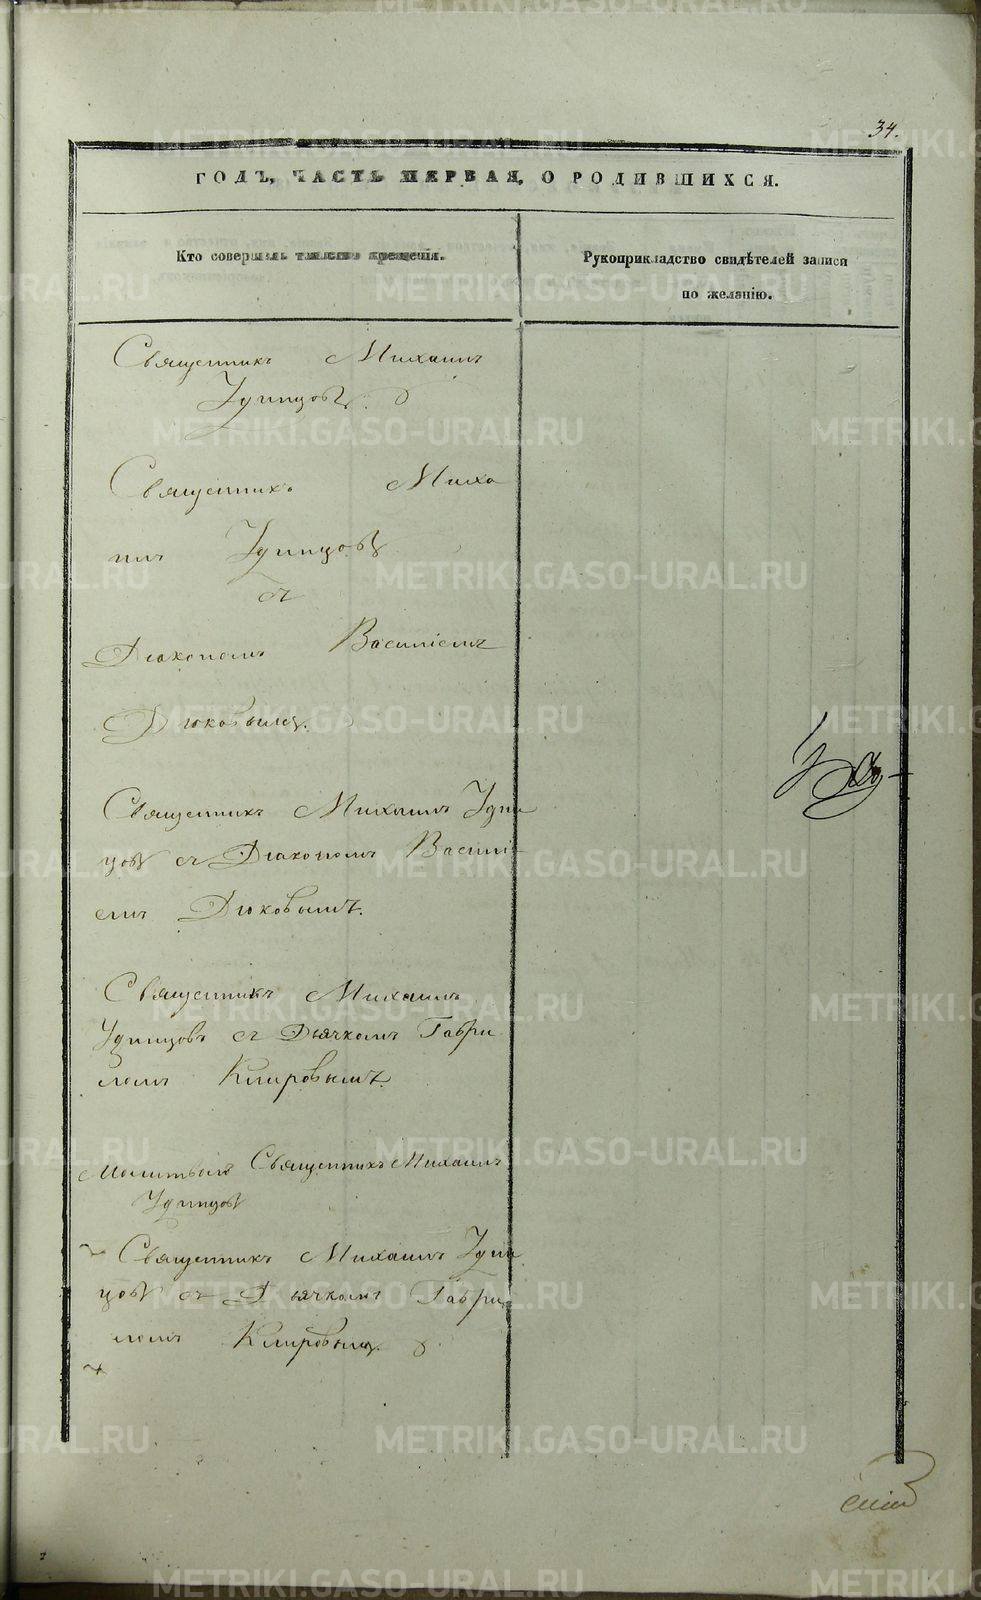 34.
ГОДЪ, ЧАСТЬ ПЕРВАЯ, О РОДИВШИХСЯ.
Кто совершалъ таинство крещенія.
Рукоприкладство свидѣтелей записи
по желанію.
Священникъ Михаилъ
Удинцовъ.
Священникъ Миха
илъ Удинцовъ
съ
Діакономъ Василіемъ
Дюковымъ.
Священникъ Михаилъ Удин
цовъ съ Діакономъ Василі
емъ Дюковымъ.
Священникъ Михаилъ
Удинцовъ съ Дьячкомъ Гаври
ломъ Кпировымъ.
Молитвилъ Священникъ Михаилъ
Удинцовъ
Священникъ Михаилъ Удин
цовъ съ Дьячкомъ Гаври
ломъ Кпировымъ.
METRIKI.GASO-URAL.RU